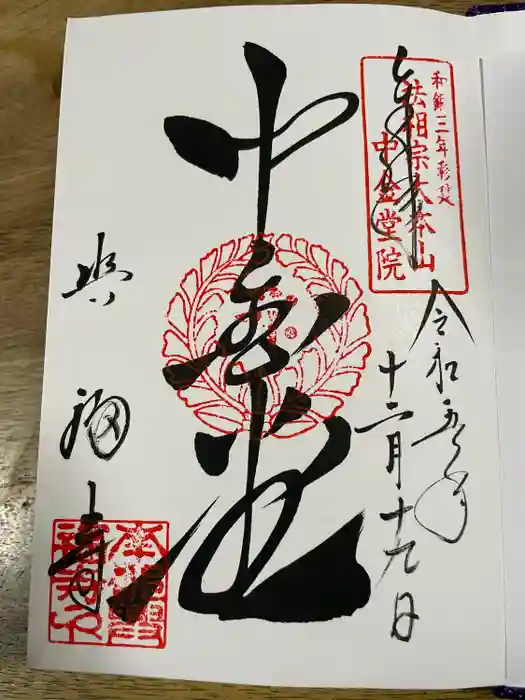 奉拝
和銅三年創建
法相宗大本山
中金堂院
令和五年
十二月十九日
中金堂
興福寺